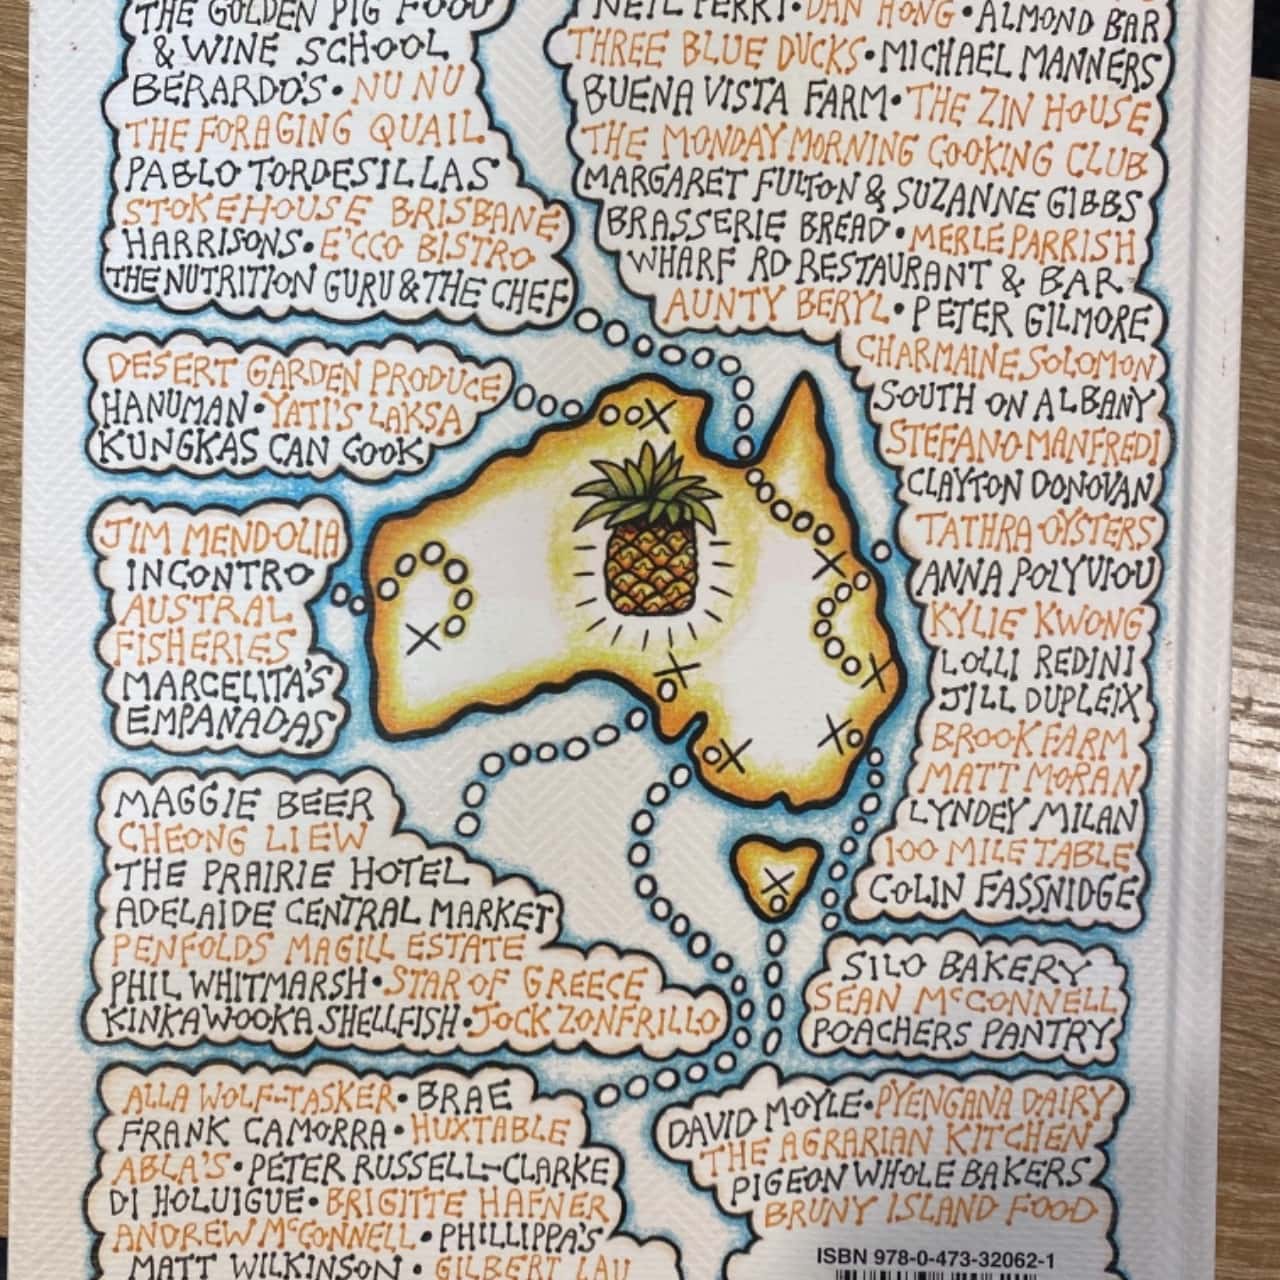 THE GOLDEN PIG FOOD
& WINE SCHOOL
BERARDO'S • NU NU
THE FORAGING QUAIL
PABLO TORDESILLAS
STOKEHOUSE BRISBANE
HARRISONS • E'CCO BISTRO
THE NUTRITION GURU & THE CHEF
NEIL PERRY • DAN HONG • ALMOND BAR
THREE BLUE DUCKS • MICHAEL MANNERS
BUENA VISTA FARM • THE ZIN HOUSE
THE MONDAY MORNING COOKING CLUB
MARGARET FULTON & SUZANNE GIBBS
BRASSERIE BREAD • MERLE PARRISH
WHARF RD RESTAURANT & BAR
AUNTY BERYL • PETER GILMORE
CHARMAINE SOLOMON
SOUTH ON ALBANY
STEFANO MANFREDI
CLAYTON DONOVAN
TATHRA OYSTERS
ANNA POLYVIOU
KYLIE KWONG
LOLLI REDINI
JILL DUPLEIX
BROOKFARM
MATT MORAN
LYNDEY MILAN
100 MILE TABLE
COLIN FASSNIDGE
DESERT GARDEN PRODUCE
HANUMAN • YATI'S LAKSA
KUNGKAS CAN COOK
JIM MENDOLIA
INCONTRO
AUSTRAL
FISHERIES
MARCELITA'S
EMPANADAS
MAGGIE BEER
CHEONG LIEW
THE PRAIRIE HOTEL
ADELAIDE CENTRAL MARKET
PENFOLDS MAGILL ESTATE
PHIL WHITMARSH • STAR OF GREECE
KINKAWOOKA SHELLFISH • JOCK ZONFRILLO
SILO BAKERY
SEAN McCONNELL
POACHERS PANTRY
ALLA WOLF-TASKER • BRAE
FRANK CAMORRA • HUXTABLE
ABLA'S • PETER RUSSELL-CLARKE
DI HOLUIGUE • BRIGITTE HAFNER
ANDREW McCONNELL • PHILLIPPA'S
MATT WILKINSON • GILBERT LAU
DAVID MOYLE • PYENGANA DAIRY
THE AGRARIAN KITCHEN
PIGEON WHOLE BAKERS
BRUNY ISLAND FOOD
ISBN 978-0-473-32062-1